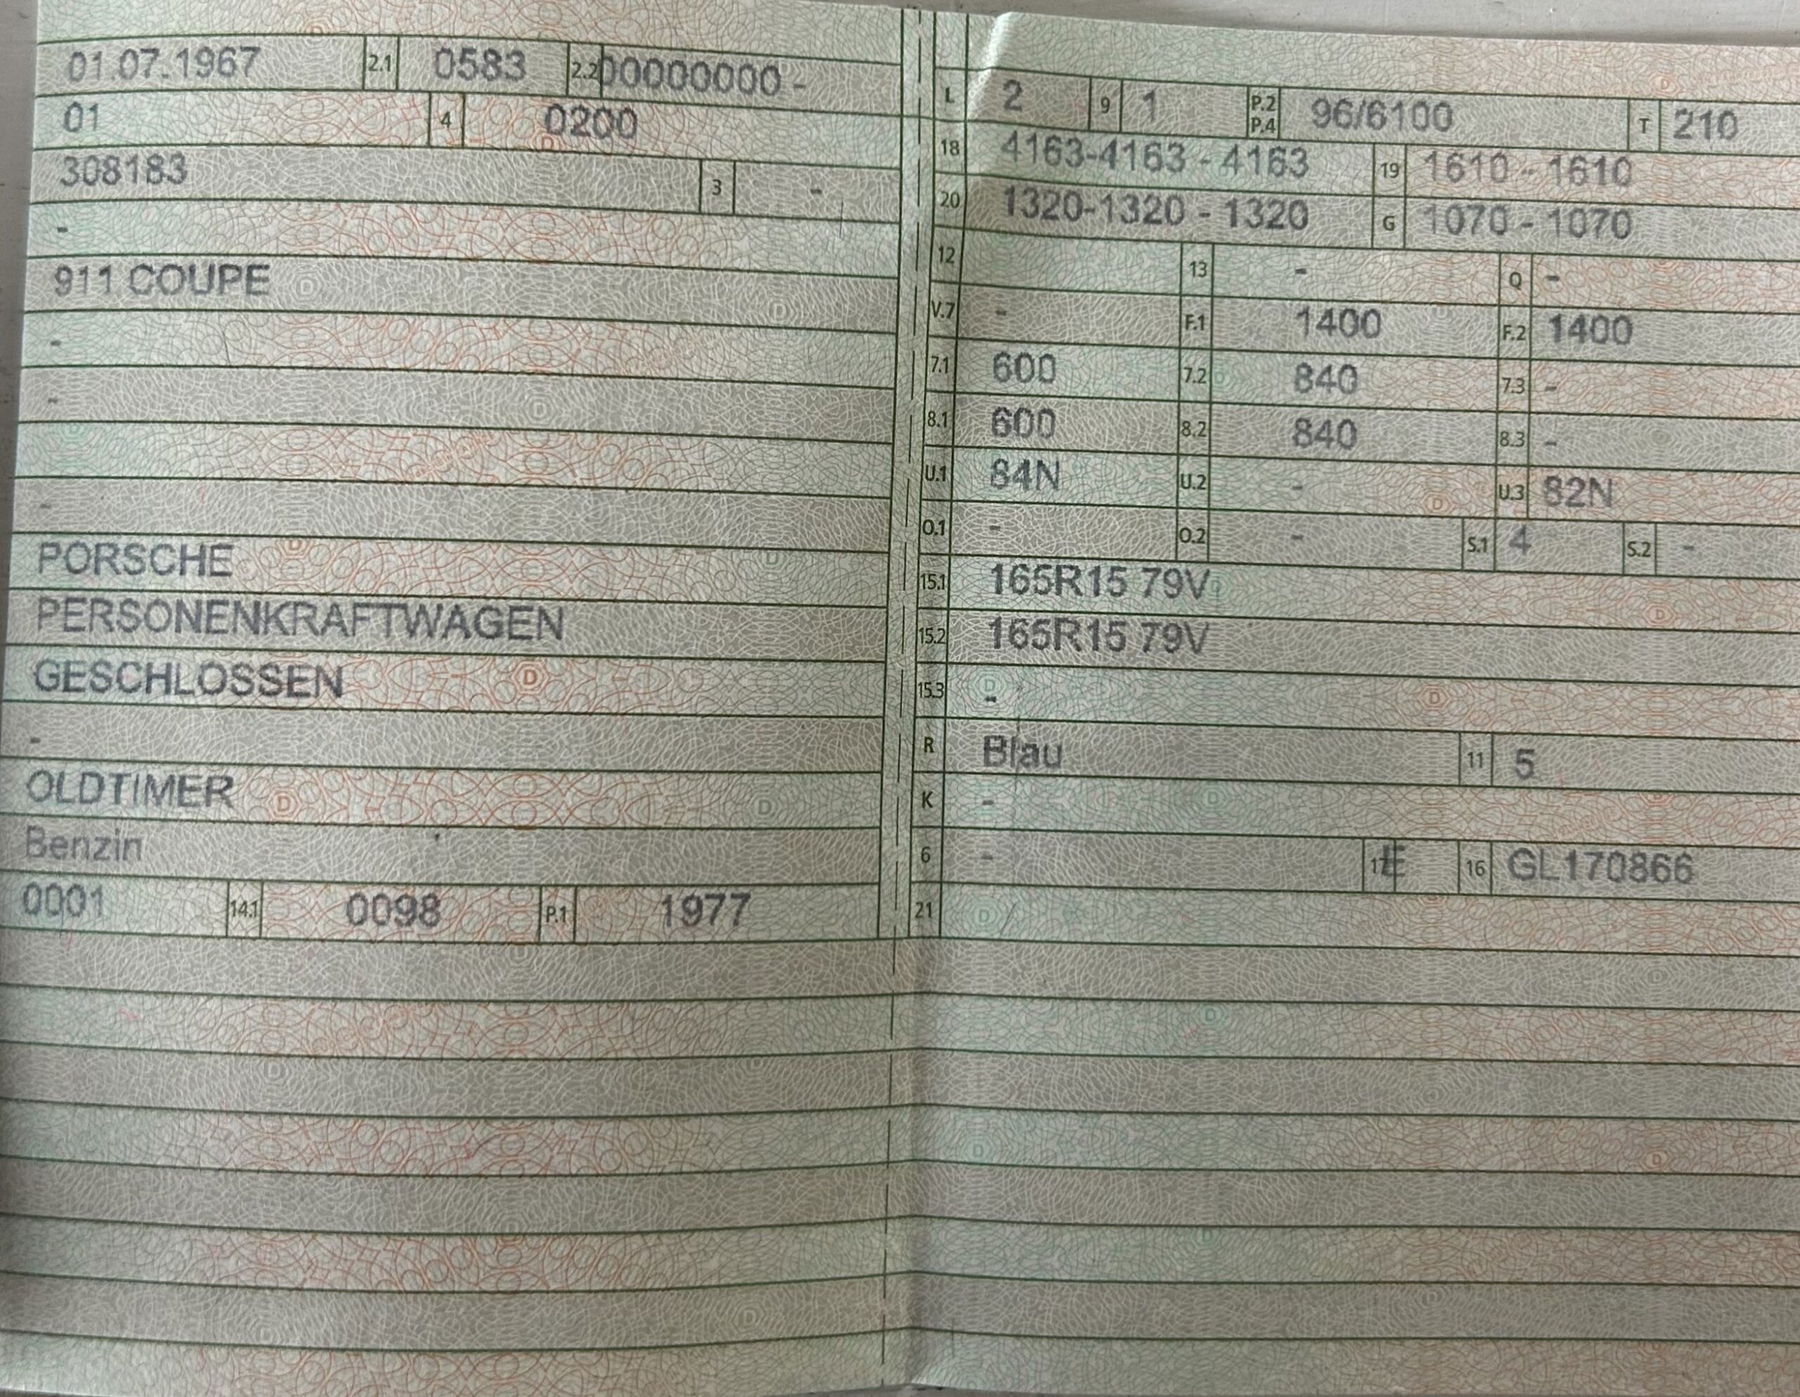 01.07.1967 2.1 0583 2.2 00000000 -
01 4 0200
308183 3 -
-
911 COUPE
-
-
-
PORSCHE
PERSONENKRAFTWAGEN
GESCHLOSSEN
-
OLDTIMER
Benzin
0001 14.1 0098 P.1 1977
L 2 9 1 P.2 P.4 96/6100 T 210
18 4163-4163 - 4163 19 1610 - 1610
20 1320-1320 - 1320 G 1070 - 1070
12 13 - Q -
V.7 - F.1 1400 F.2 1400
7.1 600 7.2 840 7.3 -
8.1 600 8.2 840 8.3 -
U.1 84N U.2 - U.3 82N
O.1 - O.2 - S.1 4 S.2 -
15.1 165R15 79V
15.2 165R15 79V
15.3 -
R Blau 11 5
K -
6 - E 16 GL170866
21